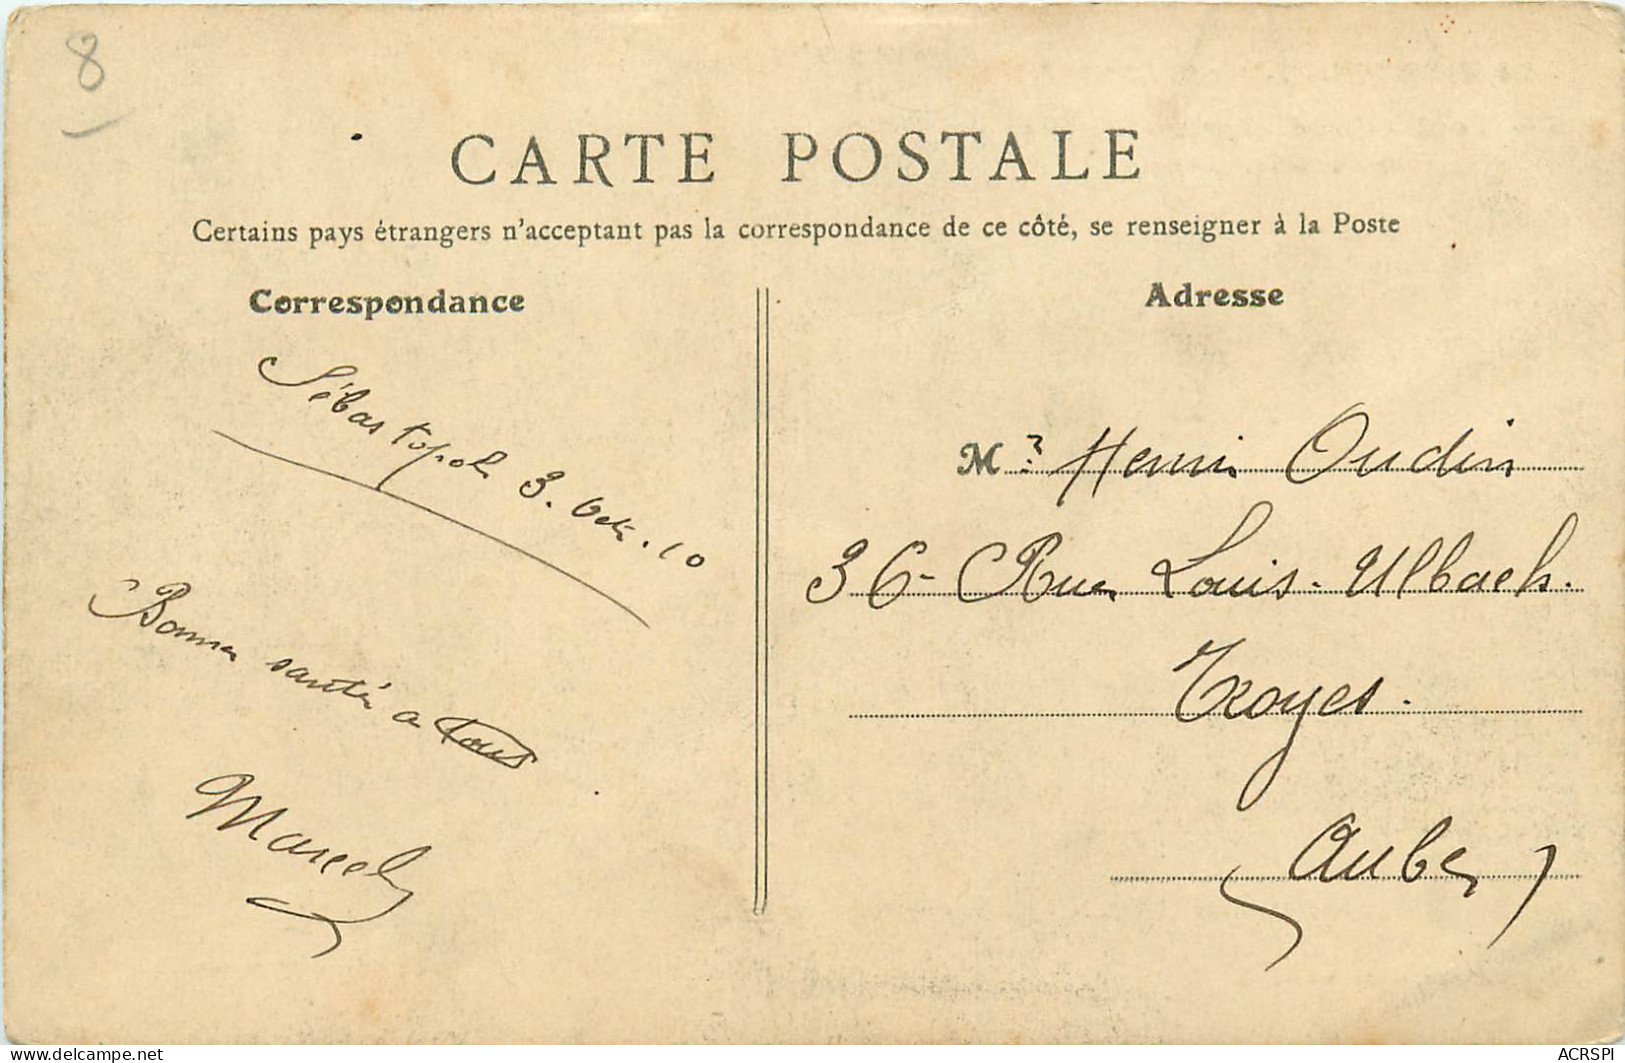 8
CARTE POSTALE
Certains pays étrangers n'acceptant pas la correspondance de ce côté, se renseigner à la Poste
Correspondance
Sébastopol 3. Oct. 10
Bonne santé a tous
Marcel
Adresse
Mr Henri Oudin
36 - Rue Louis - Ulbach.
Troyes.
(Aube)
www.delcampe.net
ACRSPI